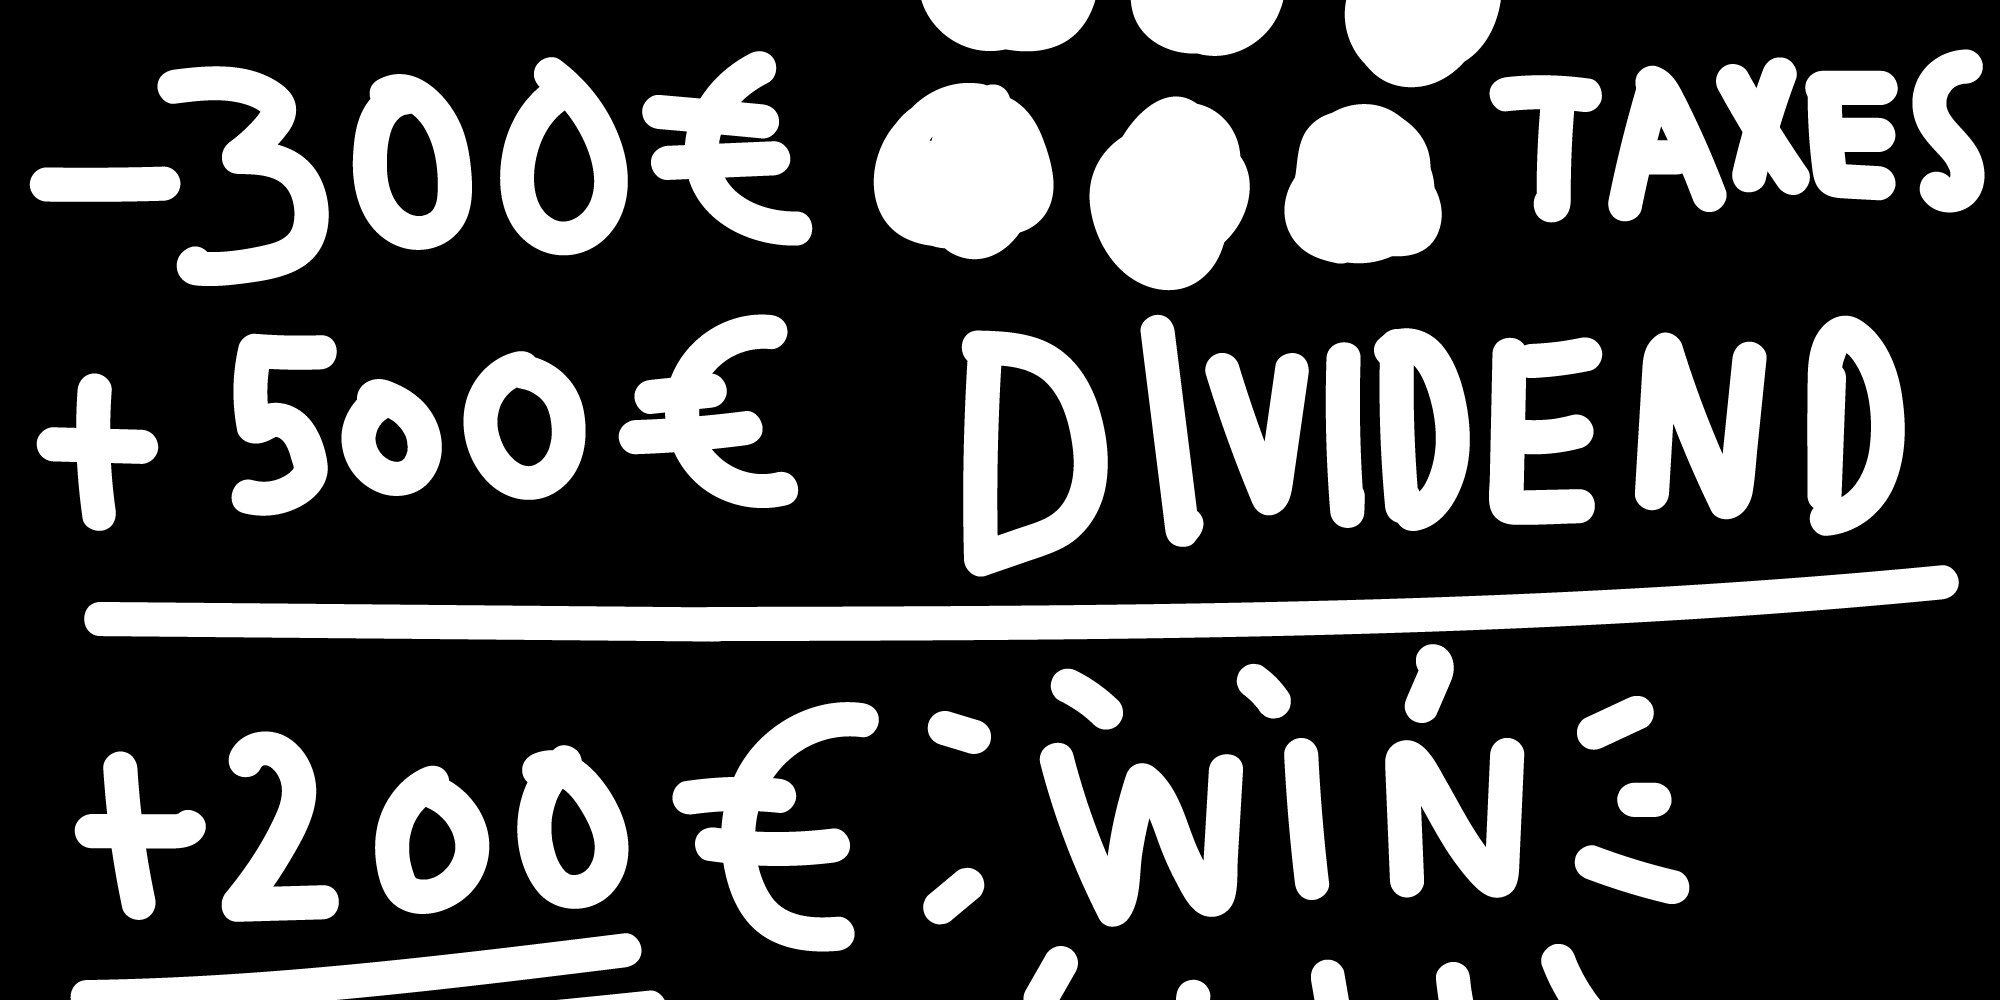 -300€ TAXES
+500€ DIVIDEND
+200€ WIN